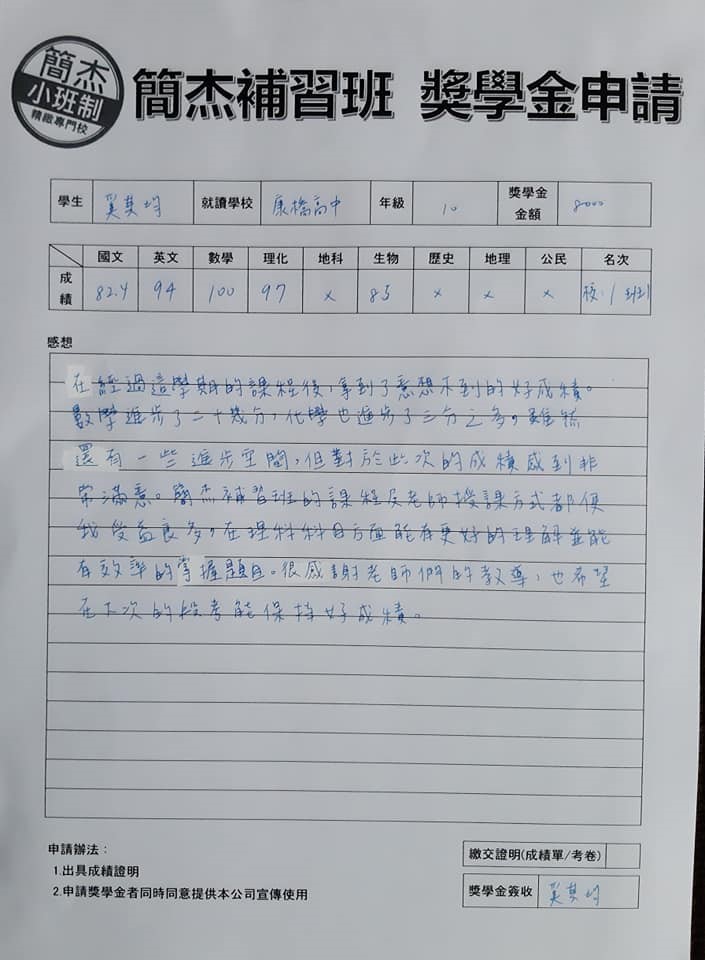 簡杰
小班制
精緻專門校
簡杰補習班 獎學金申請
學生 奚其均 就讀學校 康橋高中 年級 10 獎學金金額 8000
國文 英文 數學 理化 地科 生物 歷史 地理 公民 名次
成績 82.4 94 100 97 x 85 x x x 校:1 班1
感想
在經過這學期的課程後,拿到了意想不到的好成績。
數學進步了二十幾分,化學也進步了三分之多。雖然
還有一些進步空間,但對於此次的成績感到非
常滿意。簡杰補習班的課程及老師授課方式都使
我受益良多,在理科科目方面能有更好的理解並能
有效率的掌握題目。很感謝老師們的教導,也希望
在下次的段考能保持好成績。
申請辦法:
1.出具成績證明
2.申請獎學金者同時同意提供本公司宣傳使用
繳交證明(成績單/考卷)
獎學金簽收 奚其均